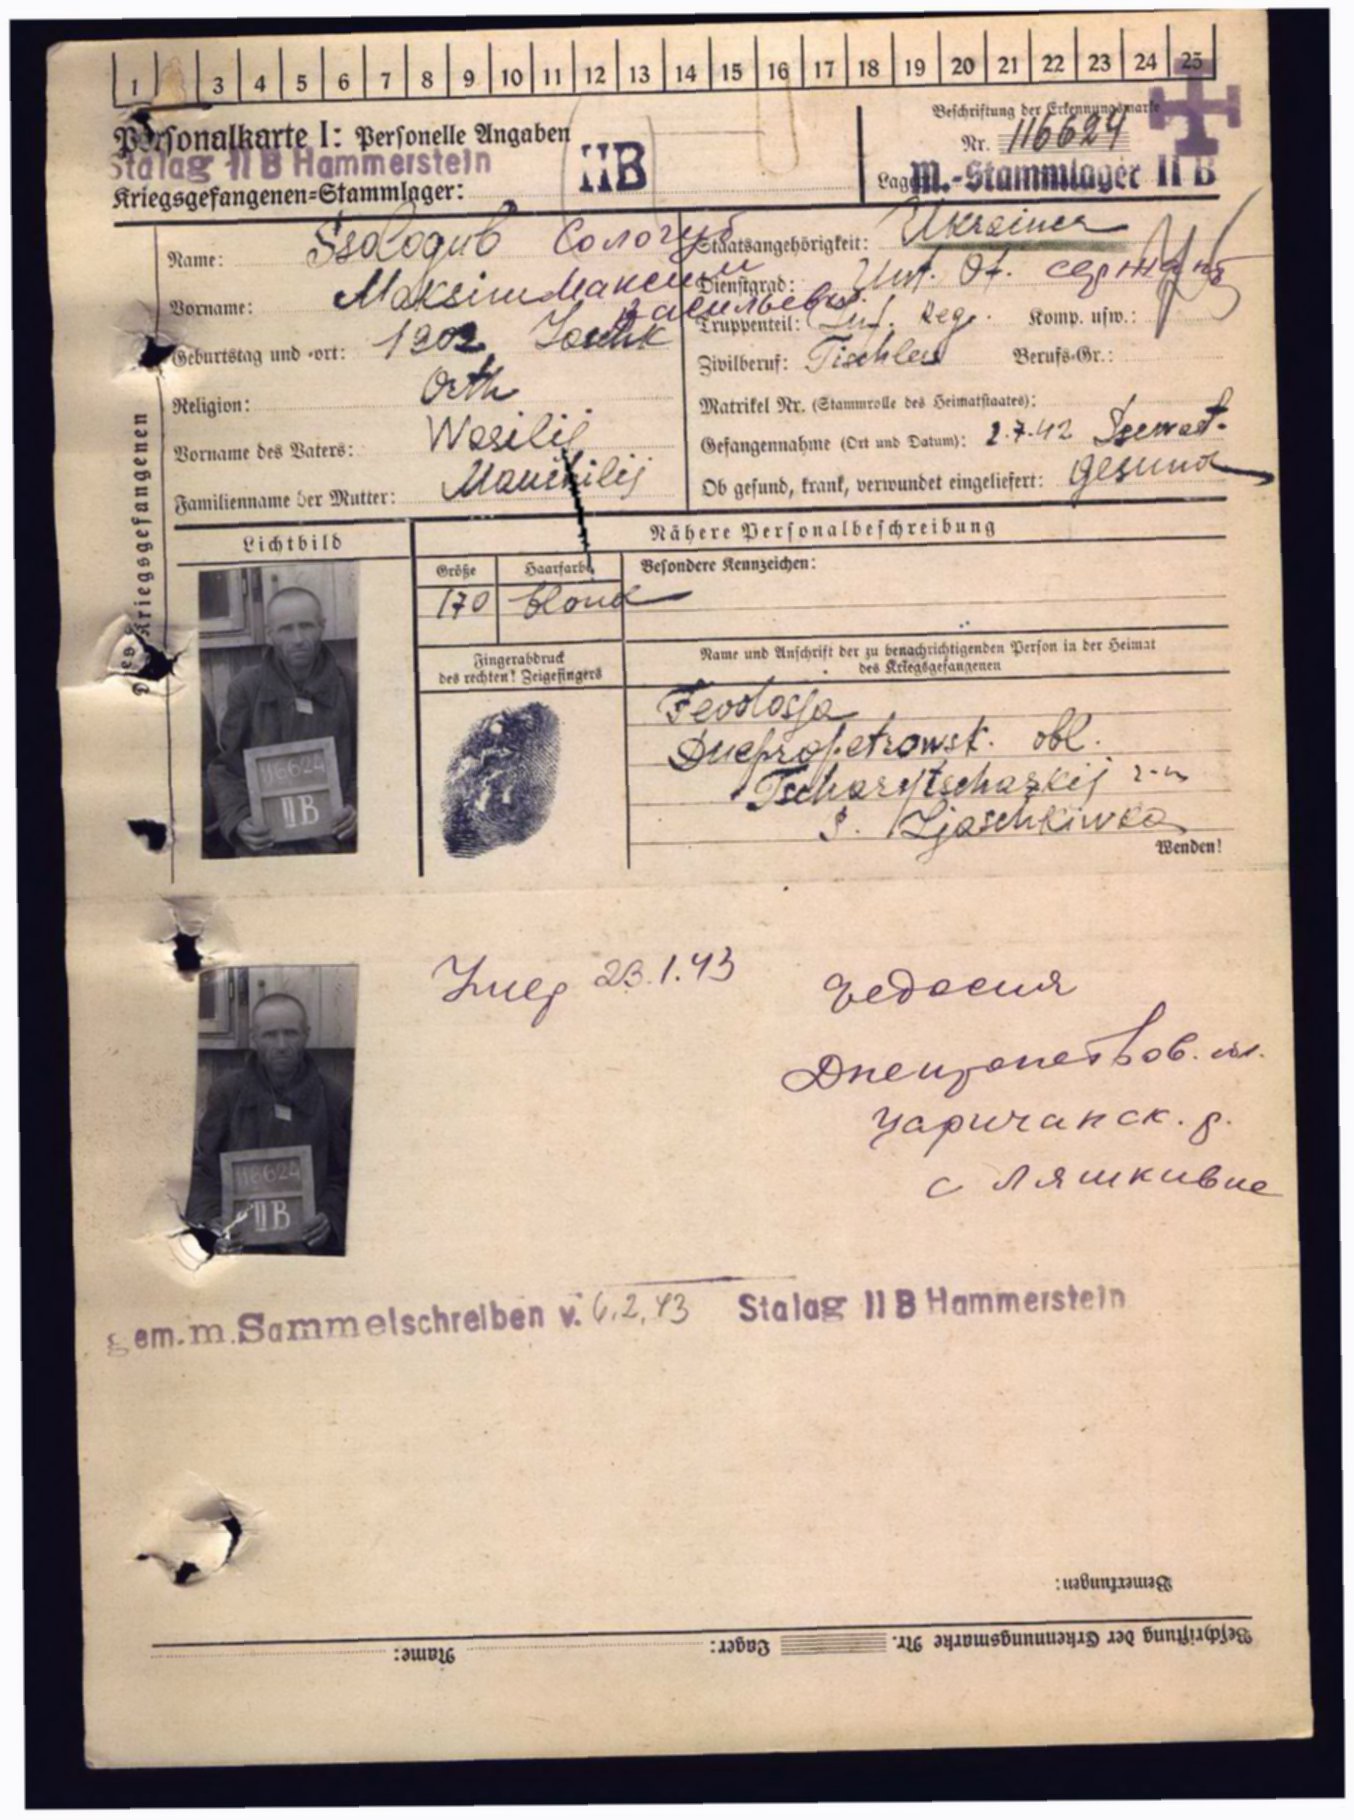 1 3 4 5 6 7 8 9 10 11 12 13 14 15 16 17 18 19 20 21 22 23 24 25
Personalkarte I: Personelle Angaben
Stalag II B Hammerstein
Kriegsgefangenen-Stammlager:
IIB
Beschriftung der Erkennungsmarke
Nr. 116624
Lager: M.-Stammlager II B
Des Kriegsgefangenen
Name: Ssologub Сологуб
Vorname: Maksim Максим
Васильев.
Geburtstag und -ort: 1902
Religion: Orth
Vorname des Vaters: Wasilij
Familienname der Mutter:
Staatsangehörigkeit: Ukrainer
Dienstgrad: Unt. Of. сержант
Truppenteil: Inf. Reg. Komp. usw.:
Zivilberuf: Tischler Berufs-Gr.:
Matrikel Nr. (Stammrolle des Heimatstaates):
Gefangennahme (Ort und Datum): 2.7.42 Ssewast.
Ob gesund, krank, verwundet eingeliefert: gesund
Lichtbild
Nähere Personalbeschreibung
Größe
170
Haarfarbe
blond
Besondere Kennzeichen:
Fingerabdruck
des rechten! Zeigefingers
Name und Anschrift der zu benachrichtigenden Person in der Heimat
des Kriegsgefangenen
Feodosja
Dnepropetrowsk. obl.
Tscharytschaskij r-n
s. Ljaschkiwka
Wenden!
116624
IIB
Умер 23.1.43
Федосия
Днепропетров. обл.
Царичанск. р.
с Ляшкивке
116624
IIB
gem. m. Sammelschreiben v. 6.2.43 Stalag II B Hammerstein
Bemerkungen:
Beschriftung der Erkennungsmarke Nr. Lager: Name: